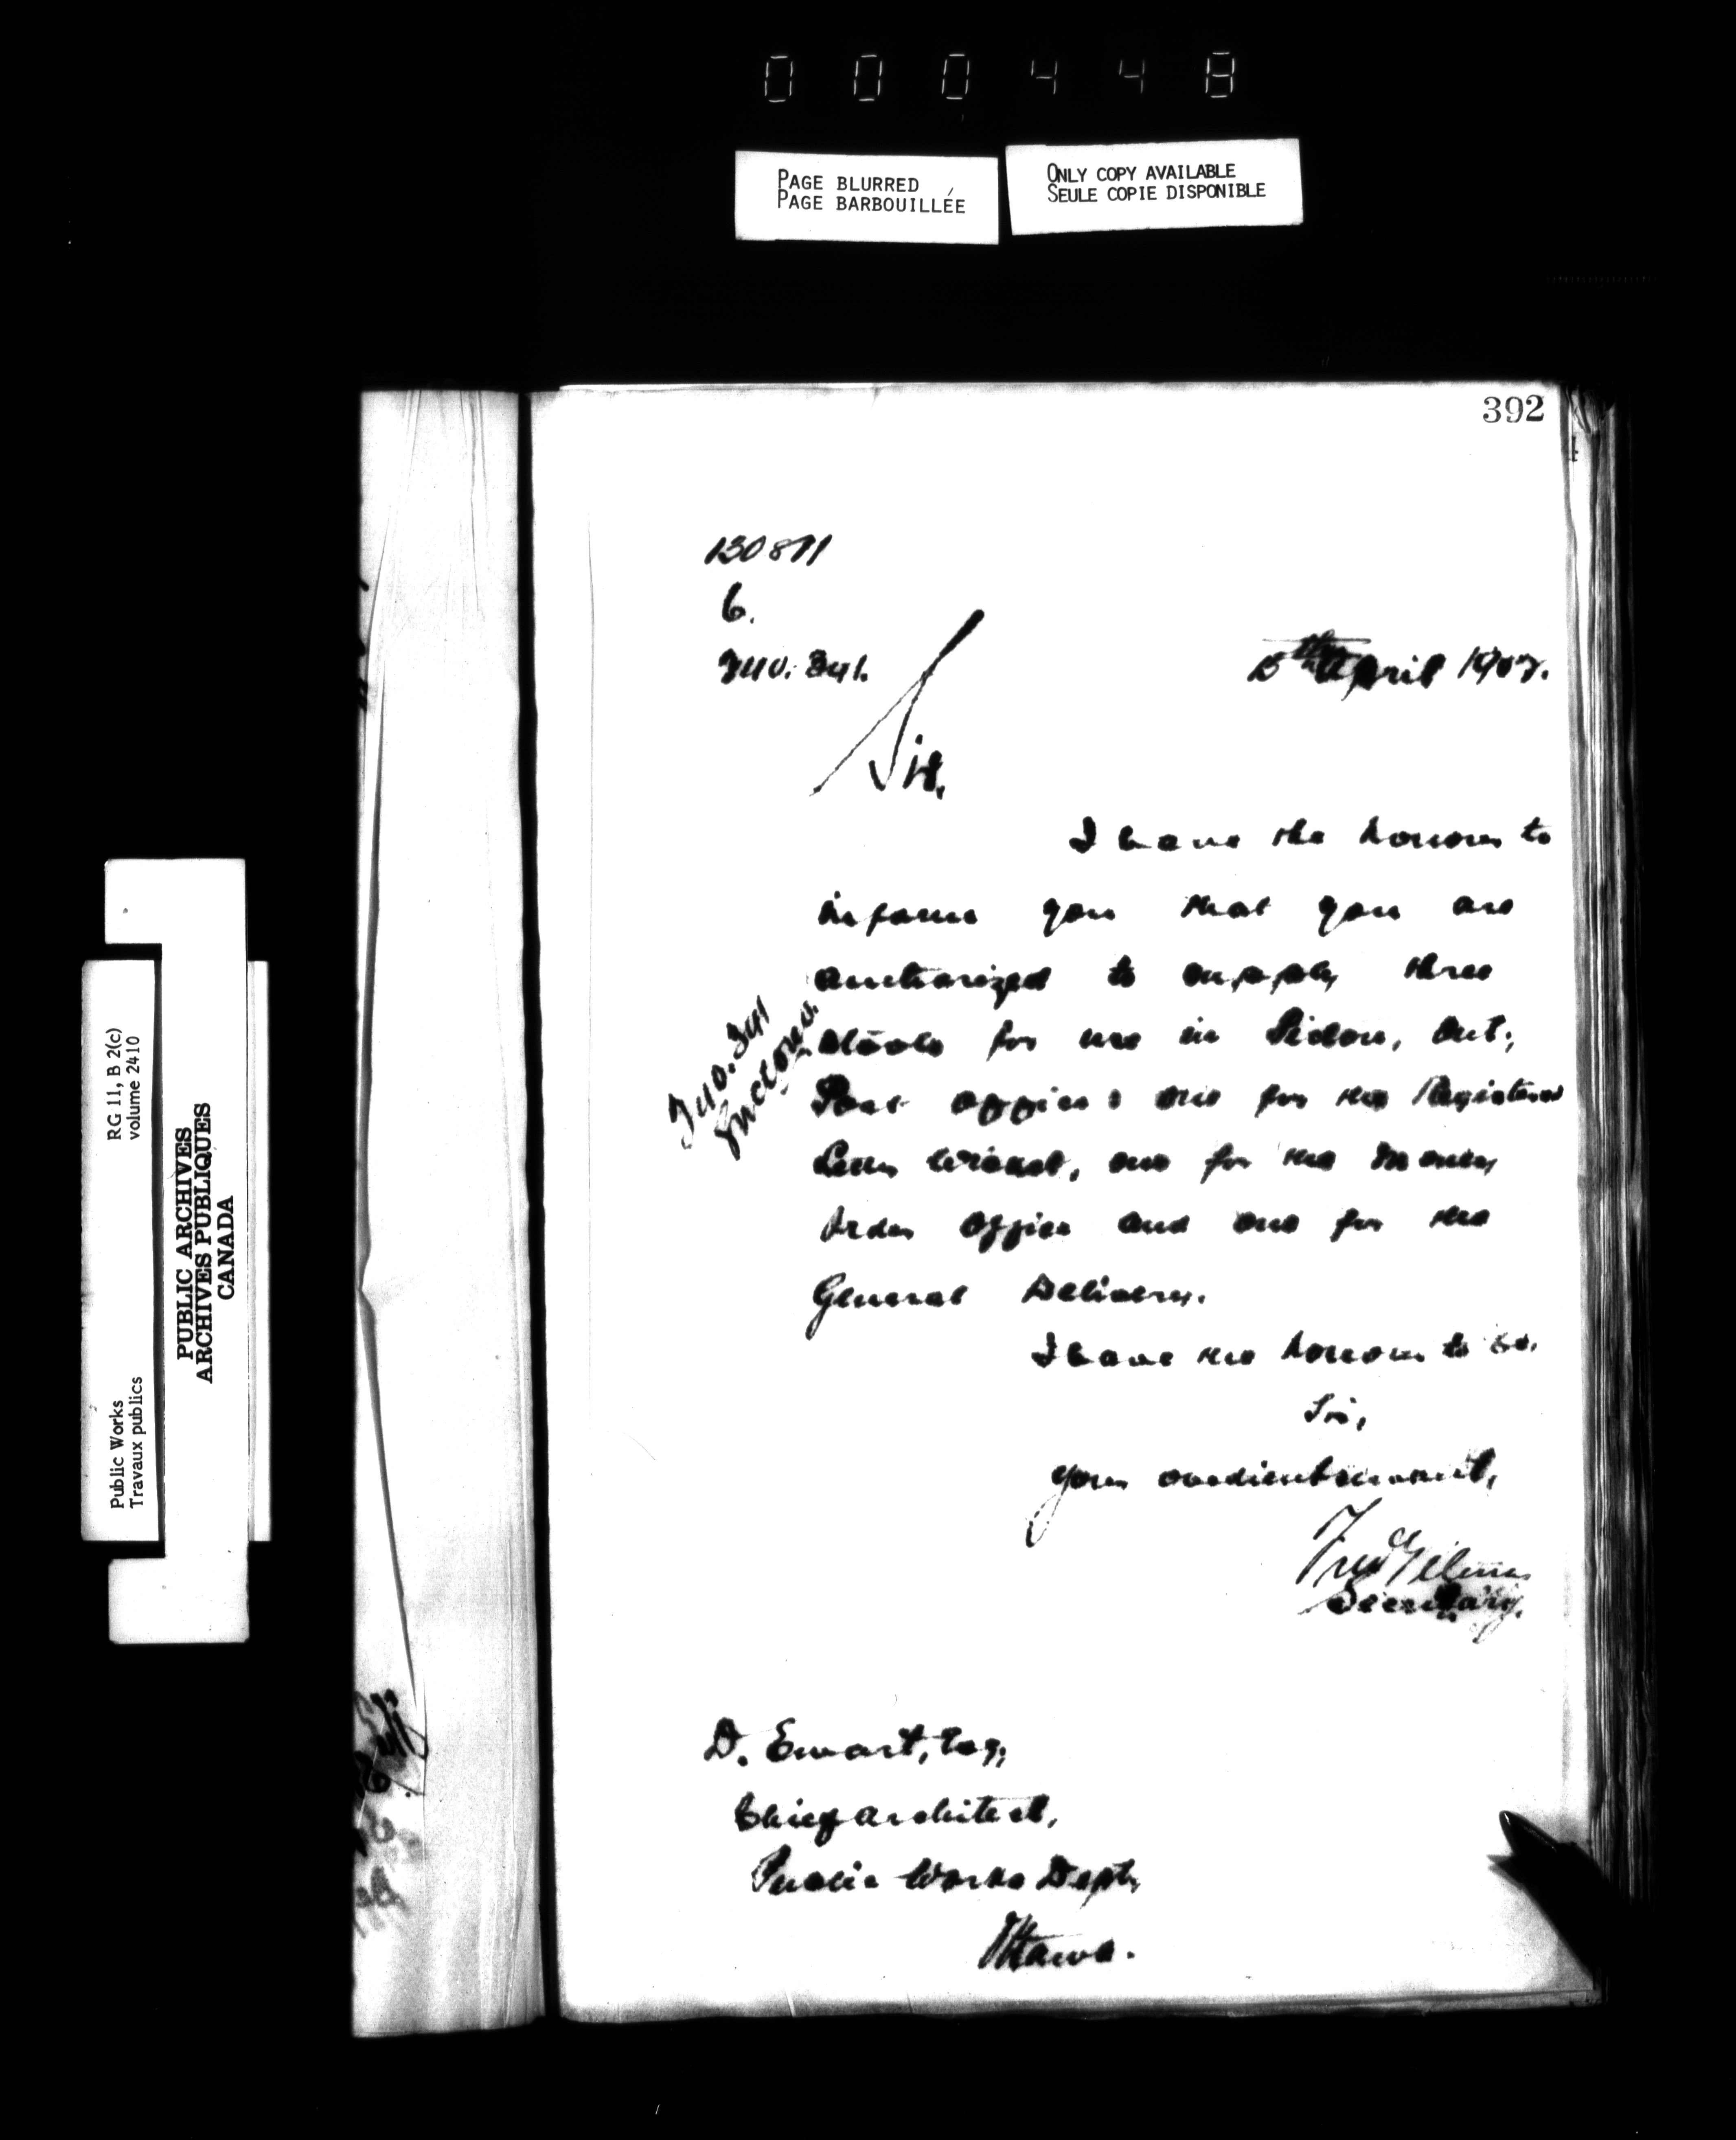 000448
PAGE BLURRED
PAGE BARBOUILLÉE
ONLY COPY AVAILABLE
SEULE COPIE DISPONIBLE
392
6.
April
Sir,
I have the honour to
inform you that you are
authorized to supply three
stools for use in Picton, Ont.,
Post Office: one for the Registered
Letter Wicket, one for the Money
Order Office and one for the
General Delivery.
I have the honour to be,
Sir,
Your obedient servant,
Secretary.
D. Ewart, Esq,
Chief Architect,
Public Works Dept,
Ottawa.
RG 11, B 2(c)
volume 2410
Public Works
Travaux publics
PUBLIC ARCHIVES
ARCHIVES PUBLIQUES
CANADA